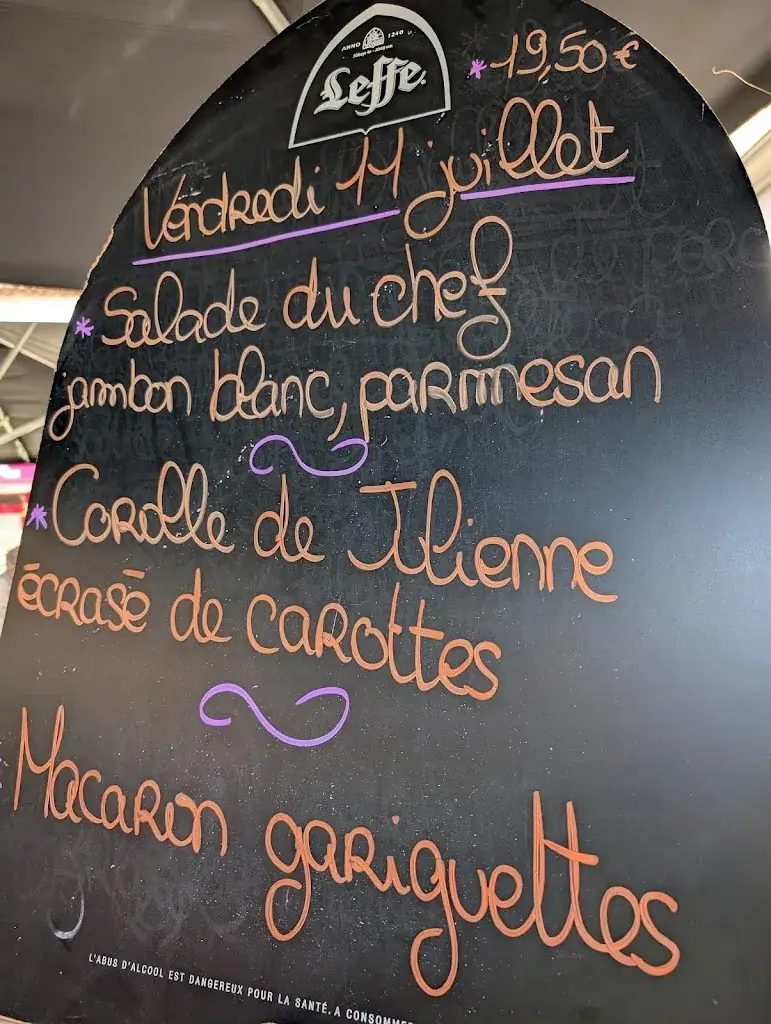 ANNO 1240
Leffe
*19,50 €
Vendredi 11 juillet
*Salade du chef
jambon blanc, parmesan
*Corolle de Julienne
écrasé de carottes
Macaron gariguettes
L'ABUS D'ALCOOL EST DANGEREUX POUR LA SANTÉ. A CONSOMMER